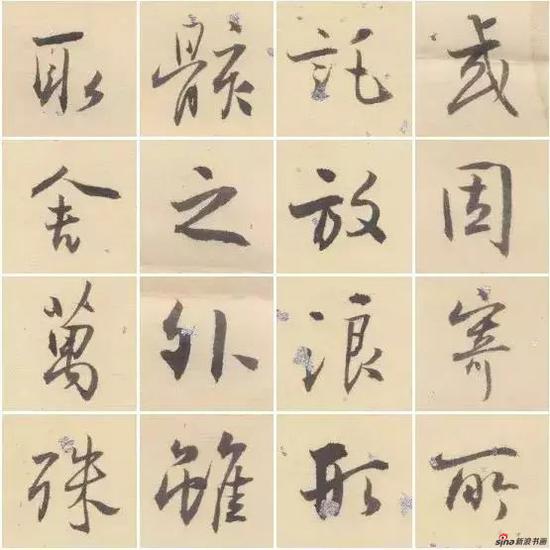 或因寄所
託放浪形
骸之外雖
取舍萬殊
sina新浪书画